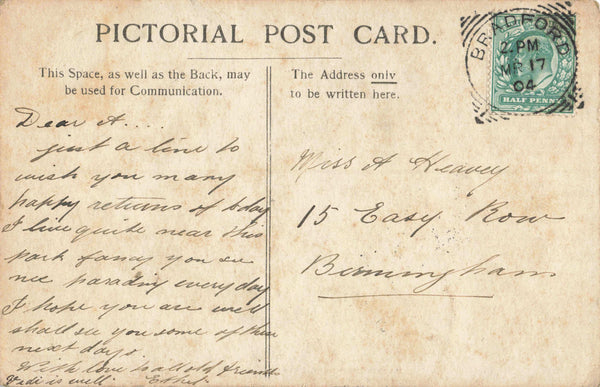 PICTORIAL POST CARD.
This Space, as well as the Back, may
be used for Communication.
The Address only
to be written here.
BRADFORD
2 PM
MR 17
04
HALF PENNY
Dear A....
just a line to
wish you many
happy returns of bday
I live quite near this
park fancy you see
me parading everyday
I hope you are well
shall see you some of these
next days.
With love to all old friends
is well Ethel
Miss A Heavey
15 Easy Row
Birmingham